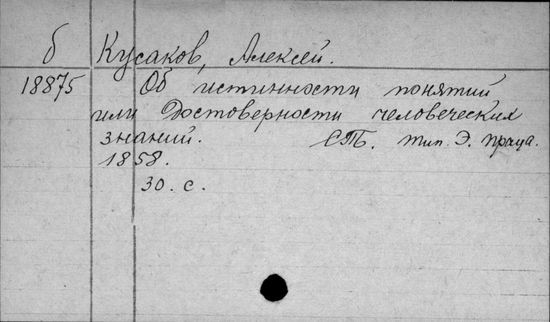 б Кусаков, Алексей.
18875 Об истинности понятий
или Достоверности человеческих
знаний. СПб. тип. Э. Праца.
1858.
30. с.